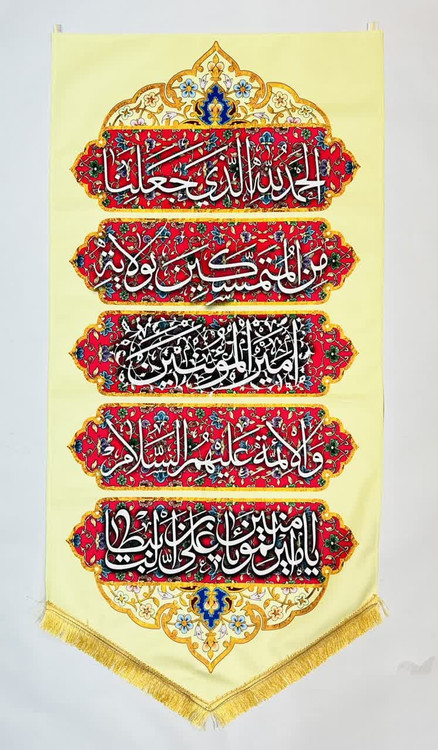 الحمد لله الذي جعلنا
من المتمسكين بولاية
امير المؤمنين
والائمة عليهم السلام
يا امير المومنين يا علي بن ابي طالب